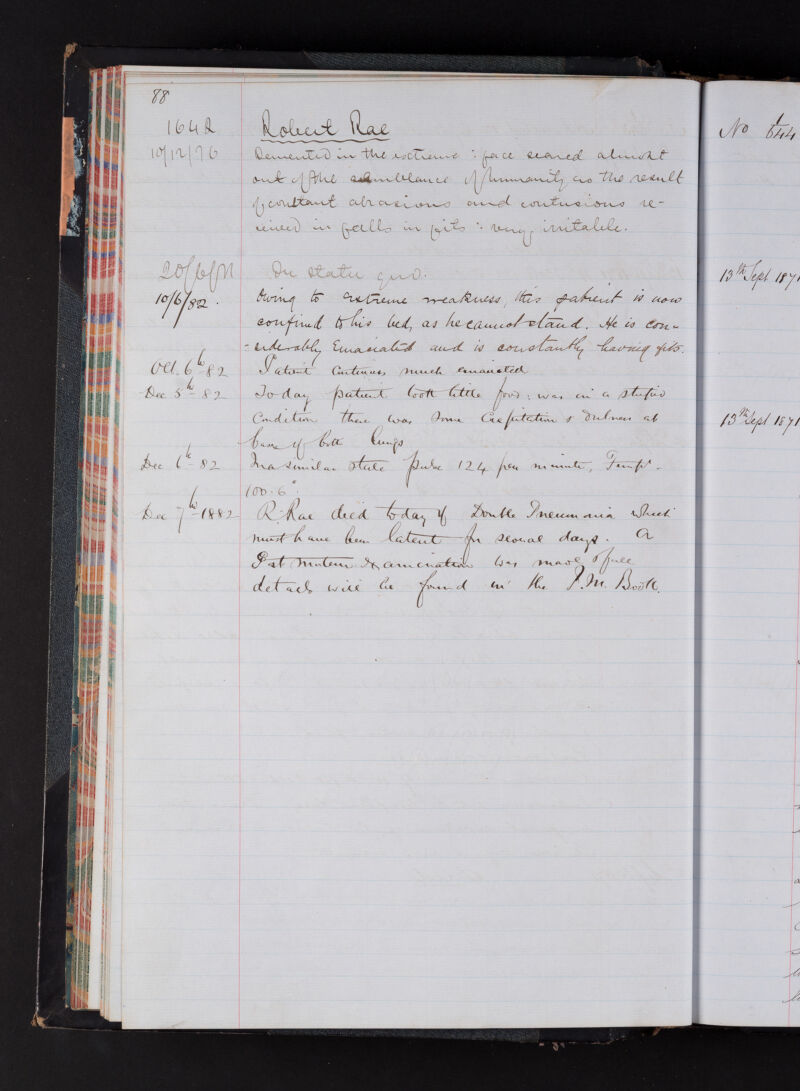 88
164R Robert Rae
10/12/76 Demented in the extreme : face seared almost
out of the semblance of humanity as the result
of constant abrasions and contusions re-
ceived in falls in fits : very irritable.
In statu quo.
10/6/82. Owing to extreme weakness, this patient is now
confined to his bed, as he cannot stand. He is con-
-siderably Emaciated and is constantly having fits.
Oct. 6th 82 Patient Continues much emaciated
Dec 5th 82 To-day patient took little food: was in a stupid
Condition there was some Crepitation & Dulness at
base of both lungs
Dec 6th 82 In a similar state pulse 124 per minute, Temp.
100.6°.
Dec 7th 1882 R. Rae died today of Double Pneumonia which
must have been latent for several days. A
Post Mortem Examination was made & full
details will be found in the P.M. Book.
No 644
13th Sept 187
13th Sept 187